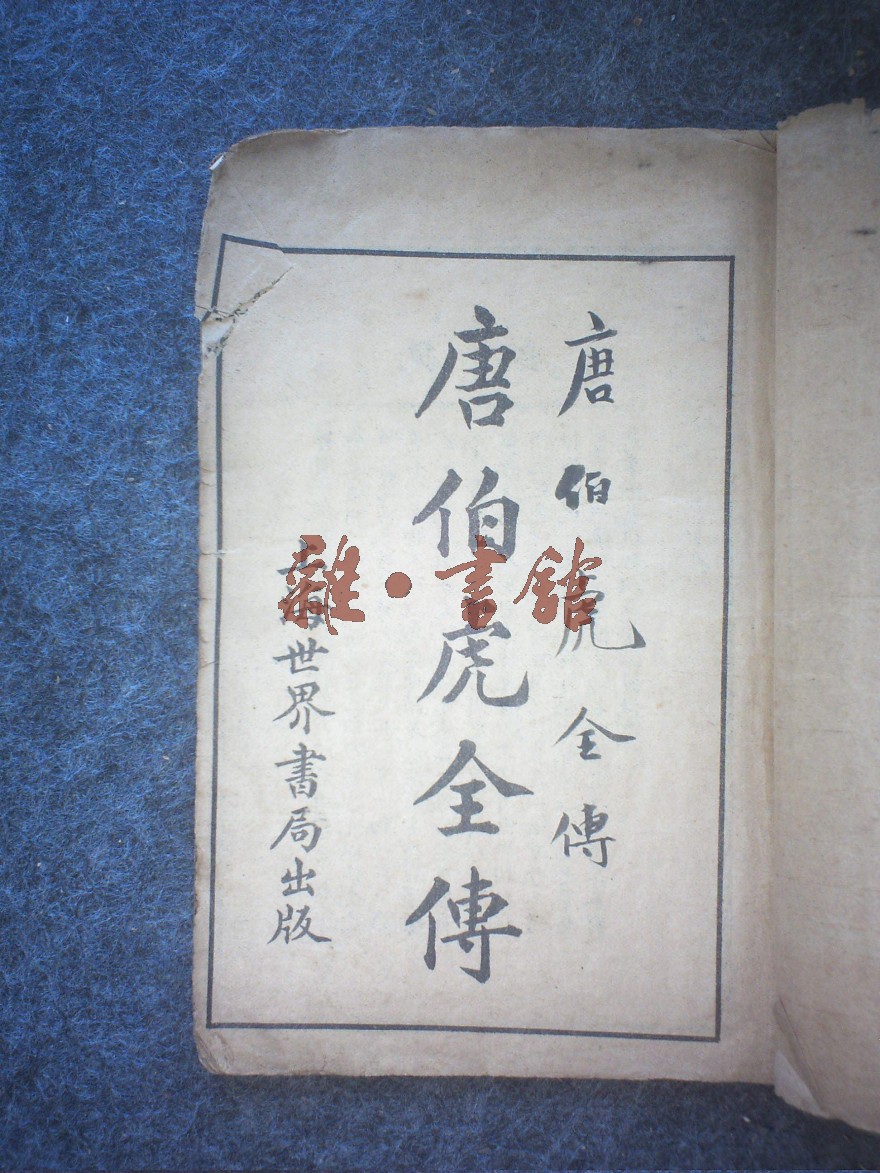 唐伯虎全傳
唐伯虎全傳
上海世界書局出版
雜·書館